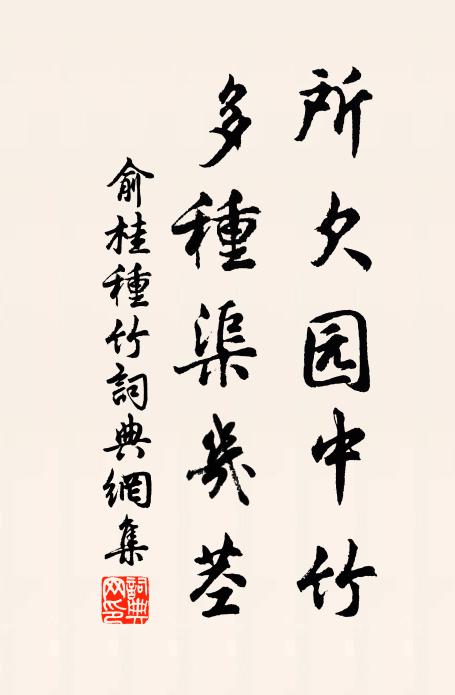 所欠园中竹
多種渠幾莖
俞桂種竹詞典網集
詞典网印